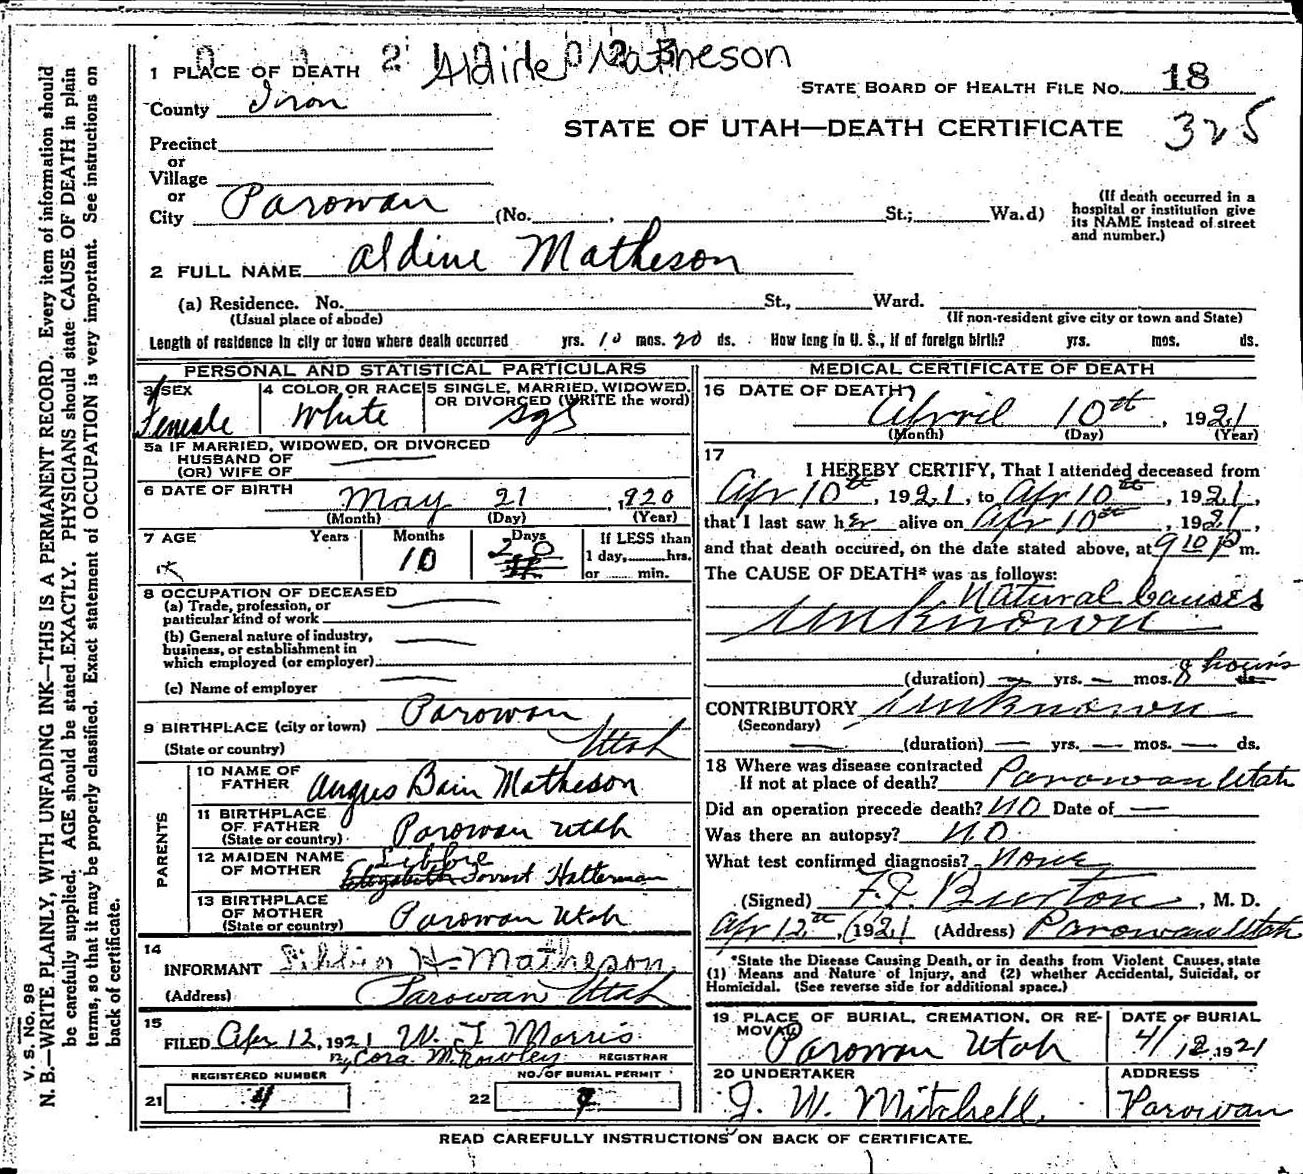 Aldine Matheson
1 PLACE OF DEATH
STATE BOARD OF HEALTH FILE NO. 18
County Iron
STATE OF UTAH—DEATH CERTIFICATE 325
Precinct
or
Village
or
City Parowan (No. , St.; Wa.d)
(If death occurred in a hospital or institution give its NAME instead of street and number.)
2 FULL NAME Aldine Matheson
(a) Residence. No. St., Ward.
(Usual place of abode) (If non-resident give city or town and State)
Length of residence in city or town where death occurred yrs. 10 mos. 20 ds. How long in U. S., if of foreign birth? yrs. mos. ds.
PERSONAL AND STATISTICAL PARTICULARS
3 SEX Female
4 COLOR OR RACE White
5 SINGLE, MARRIED, WIDOWED, OR DIVORCED (WRITE the word) Sgl
5a IF MARRIED, WIDOWED, OR DIVORCED
HUSBAND OF
(OR) WIFE OF
6 DATE OF BIRTH May 21, 1920
(Month) (Day) (Year)
7 AGE Years Months 10 Days 20
If LESS than
1 day, hrs.
or min.
8 OCCUPATION OF DECEASED
(a) Trade, profession, or
particular kind of work
(b) General nature of industry,
business, or establishment in
which employed (or employer)
(c) Name of employer
9 BIRTHPLACE (city or town) Parowan
(State or country) Utah
PARENTS
10 NAME OF FATHER Angus Bain Matheson
11 BIRTHPLACE OF FATHER (State or country) Parowan Utah
12 MAIDEN NAME OF MOTHER Elizabeth Forrest Halterman
13 BIRTHPLACE OF MOTHER (State or country) Parowan Utah
14
INFORMANT H. Matheson
(Address) Parowan Utah
15
FILED Apr 12, 1921 W. T. Morris
By Cora M. Rowley REGISTRAR
REGISTERED NUMBER NO. OF BURIAL PERMIT
21 4 22 7
MEDICAL CERTIFICATE OF DEATH
16 DATE OF DEATH
April 10th, 1921
(Month) (Day) (Year)
17
I HEREBY CERTIFY, That I attended deceased from
Apr 10th, 1921, to Apr 10th, 1921,
that I last saw her alive on Apr 10th, 1921,
and that death occured, on the date stated above, at 9 10 P m.
The CAUSE OF DEATH* was as follows:
Natural Causes
Unknown
(duration) — yrs. — mos. 8 hours ds.
CONTRIBUTORY Unknown
(Secondary)
(duration) — yrs. — mos. — ds.
18 Where was disease contracted
If not at place of death? Parowan Utah
Did an operation precede death? NO Date of —
Was there an autopsy? NO
What test confirmed diagnosis? None
(Signed) F. J. Burton, M. D.
Apr 12th, 1921 (Address) Parowan Utah
*State the Disease Causing Death, or in deaths from Violent Causes, state
(1) Means and Nature of Injury, and (2) whether Accidental, Suicidal, or
Homicidal. (See reverse side for additional space.)
19 PLACE OF BURIAL, CREMATION, OR RE-
MOVAL Parowan Utah
DATE OF BURIAL
4/12, 1921
20 UNDERTAKER
J. W. Mitchell
ADDRESS
Parowan
READ CAREFULLY INSTRUCTIONS ON BACK OF CERTIFICATE.
V. S. No. 98
N. B.—WRITE PLAINLY, WITH UNFADING INK—THIS IS A PERMANENT RECORD. Every item of information should
be carefully supplied. AGE should be stated EXACTLY. PHYSICIANS should state CAUSE OF DEATH in plain
terms, so that it may be properly classified. Exact statement of OCCUPATION is very important. See instructions on
back of certificate.